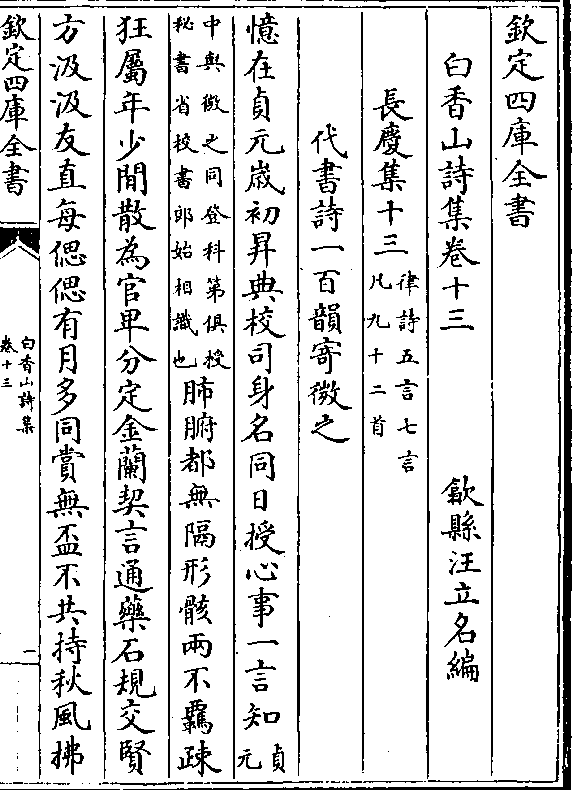 欽定四庫全書
白香山詩集卷十三
歙縣汪立名編
長慶集十三
律詩五言七言
凡九十二首
代書詩一百韻寄微之
憶在貞元歲初昇典校司身名同日授心事一言知
貞
元
中與微之同登科第俱授
秘書省校書郎始相識也
肺腑都無隔形骸兩不羈疎
狂屬年少閒散為官卑分定金蘭契言通藥石規交賢
方汲汲友直每偲偲有月多同賞無盃不共持秋風拂
欽定四庫全書
白香山詩集
卷十三
一